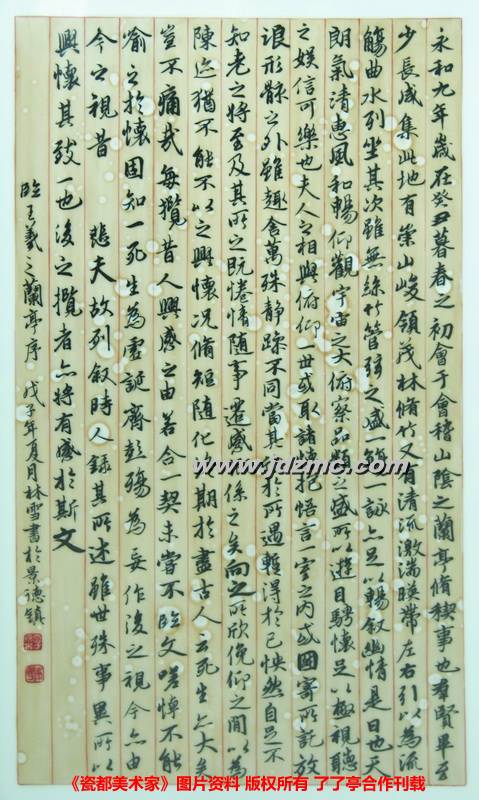 永和九年歲在癸丑暮春之初會于會稽山陰之蘭亭脩稧事也羣賢畢至
少長咸集此地有崇山峻領茂林脩竹又有清流激湍暎帶左右引以為流
觴曲水列坐其次雖無絲竹管弦之盛一觴一詠亦足以暢叙幽情是日也天
朗氣清惠風和暢仰觀宇宙之大俯察品類之盛所以遊目騁懷足以極視聽
之娛信可樂也夫人之相與俯仰一世或取諸懷抱悟言一室之內或因寄所託放
浪形骸之外雖趣舍萬殊静躁不同當其於所遇蹔得於己怏然自足不
知老之將至及其所之既惓情随事遷感係之矣向之所欣俛仰之間以為
陳迹猶不能不以之興懷况脩短随化終期於盡古人云死生亦大矣
豈不痛哉每攬昔人興感之由若合一契未嘗不臨文嗟悼不能
喻之於懷固知一死生為虛誕齊彭殤為妄作後之視今亦由
今之視昔 悲夫故列叙時人録其所述雖世殊事異所以
興懷其致一也後之攬者亦將有感於斯文
臨王羲之蘭亭序 戊子年夏月林雪書於景德鎮
www.jdzmc.com
《瓷都美术家》图片资料 版权所有 了了亭合作刊载